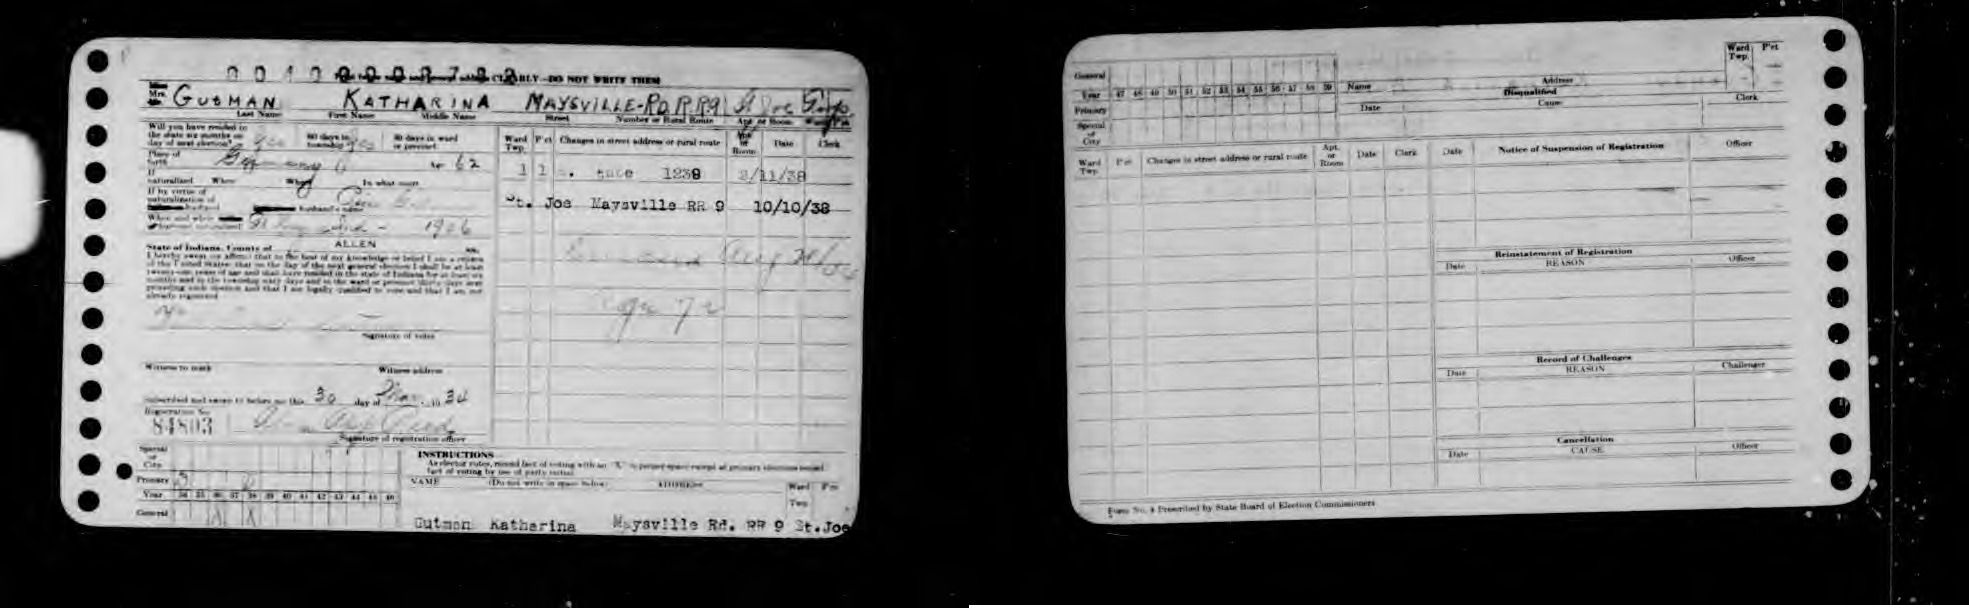 CLEARLY—DO NOT WRITE THEM
Mrs. GUTMAN KATHARINA MAYSVILLE-RD.R.R9 St Joe Twp.
Last Name First Name Middle Name Street Number or Rural Route Apt. or Room
Will you have resided in the state six months on day of next election? Yes 60 days in township? Yes 30 days in ward or precinct
Place of birth Germany 62
If naturalized When Where In what court
If by virtue of naturalization of husband husband's name
When and where 1906
State of Indiana, County of ALLEN ss.
I hereby swear (or affirm) that to the best of my knowledge or belief I am a citizen
of the United States; that on the day of the next general election I shall be at least
twenty-one years of age and shall have resided in the state of Indiana for at least six
months and in the township sixty days and in the ward or precinct thirty days next
preceding such election and that I am legally qualified to vote and that I am not
already registered.
Signature of voter
Witness to mark Witness address
Subscribed and sworn to before me this 30 day of Mar. 19 34
Registration No.
84803
Signature of registration officer
Ward Twp. P'ct Changes in street address or rural route Apt. or Room Date Clerk
1 1 1238 /11/38
St. Joe Maysville RR 9 10/10/38
Aug
Age 72
Special or City
Primary
Year 34 35 36 37 38 39 40 41 42 43 44 45 46
General X X
INSTRUCTIONS
As elector votes, record fact of voting with an "X" in proper space except at primary elections record
fact of voting by use of party initial.
NAME (Do not write in space below) ADDRESS Ward Twp. P'ct
Gutman Katharina Maysville Rd. RR 9 St.Joe
General
Year 47 48 49 50 51 52 53 54 55 56 57 58 59
Primary
Special or City
Name Address Ward Twp. P'ct
Disqualified
Date Cause Clerk
Ward Twp. P'ct Changes in street address or rural route Apt. or Room Date Clerk
Date Notice of Suspension of Registration Officer
Reinstatement of Registration
Date REASON Officer
Record of Challenges
Date REASON Challenger
Cancellation
Date CAUSE Officer
Form No. 4 Prescribed by State Board of Election Commissioners